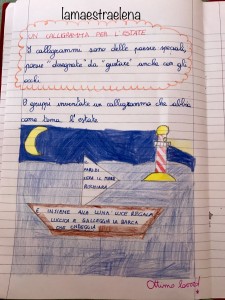 lamaestraelena
UN CALLIGRAMMA PER L'ESTATE
I calligrammi sono delle poesie speciali,
poesie "disegnate" da "gustare" anche con gli
occhi.
A gruppi inventate un calligramma che abbia
come tema l'estate.
E INSIEME ALLA LUNA LUCE REGALA
LUCCICA E GALLEGGIA LA BARCA
CHE
Ottimo lavoro!